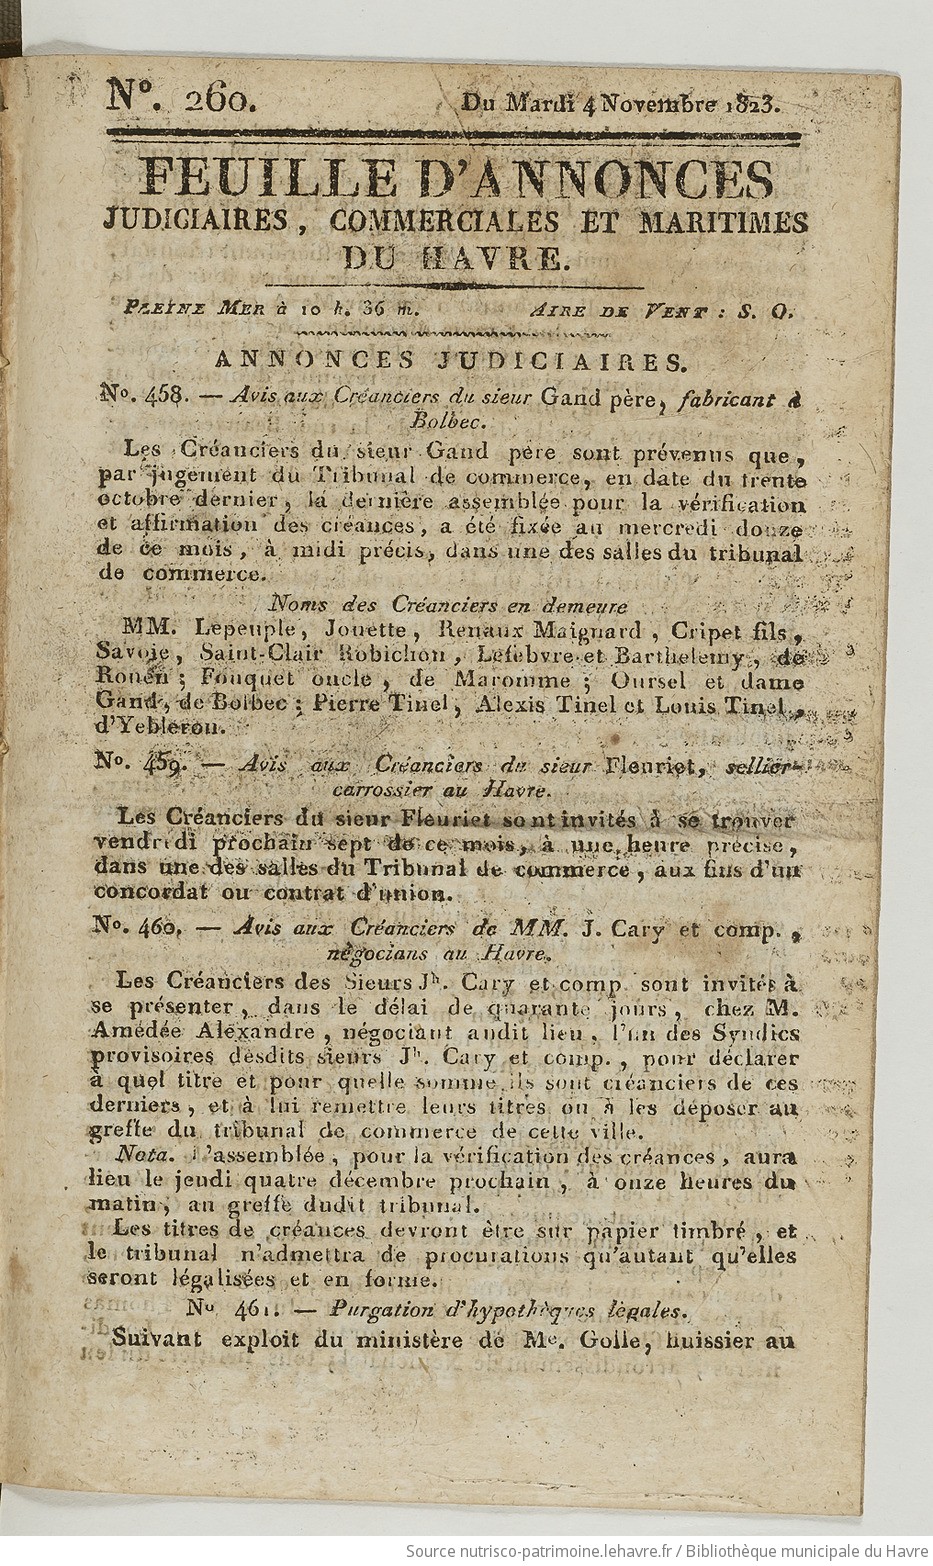 Nº. 260. Du Mardi 4 Novembre 1823.
FEUILLE D'ANNONCES
JUDICIAIRES, COMMERCIALES ET MARITIMES
DU HAVRE.
PLEINE MER à 10 h. 36 m. AIRE DE VENT : S. O.
ANNONCES JUDICIAIRES.
Nº. 458. — Avis aux Créanciers du sieur Gand père, fabricant à
Bolbec.
Les Créanciers du sieur Gand père sont prévenus que,
par jugement du Tribunal de commerce, en date du trente
octobre dernier, la dernière assemblée pour la vérification
et affirmation des créances, a été fixée au mercredi douze
de ce mois, à midi précis, dans une des salles du tribunal
de commerce.
Noms des Créanciers en demeure
MM. Lepeuple, Jouette, Renaux Maignard, Cripet fils,
Savoie, Saint-Clair Robichon, Lefebvre et Barthelemy, de
Rouen ; Fouquet oncle, de Maromme ; Oursel et dame
Gand, de Bolbec ; Pierre Tinel, Alexis Tinel et Louis Tinel,
d'Yebleron.
Nº. 459. — Avis aux Créanciers du sieur Fleuriet, sellier-
carrossier au Havre.
Les Créanciers du sieur Fleuriet sont invités à se trouver
vendredi prochain sept de ce mois, à une heure précise,
dans une des salles du Tribunal de commerce, aux fins d'un
concordat ou contrat d'union.
Nº. 460. — Avis aux Créanciers de MM. J. Cary et comp.,
négocians au Havre.
Les Créanciers des Sieurs Jh. Cary et comp. sont invités à
se présenter, dans le délai de quarante jours, chez M.
Amédée Alexandre, négociant audit lieu, l'un des Syndics
provisoires desdits sieurs Jh. Cary et comp., pour déclarer
à quel titre et pour quelle somme ils sont créanciers de ces
derniers, et à lui remettre leurs titres ou à les déposer au
greffe du tribunal de commerce de cette ville.
Nota. L'assemblée, pour la vérification des créances, aura
lieu le jeudi quatre décembre prochain, à onze heures du
matin, au greffe dudit tribunal.
Les titres de créances devront être sur papier timbré, et
le tribunal n'admettra de procurations qu'autant qu'elles
seront légalisées et en forme.
Nº 461. — Purgation d'hypothèques légales.
Suivant exploit du ministère de Me. Golle, huissier au
Source nutrisco-patrimoine.lehavre.fr / Bibliothèque municipale du Havre